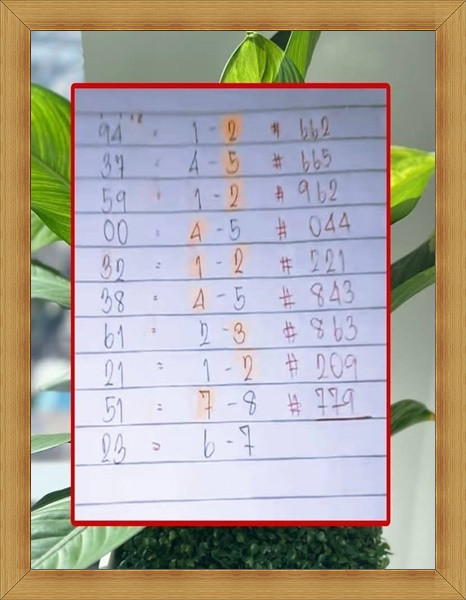 94 = 1 - 2 # 662
37 = 4 - 5 # 665
59 = 1 - 2 # 962
00 = 4 - 5 # 044
32 = 1 - 2 # 221
38 = 4 - 5 # 843
61 = 2 - 3 # 863
21 = 1 - 2 # 209
51 = 7 - 8 # 779
23 = 6 - 7